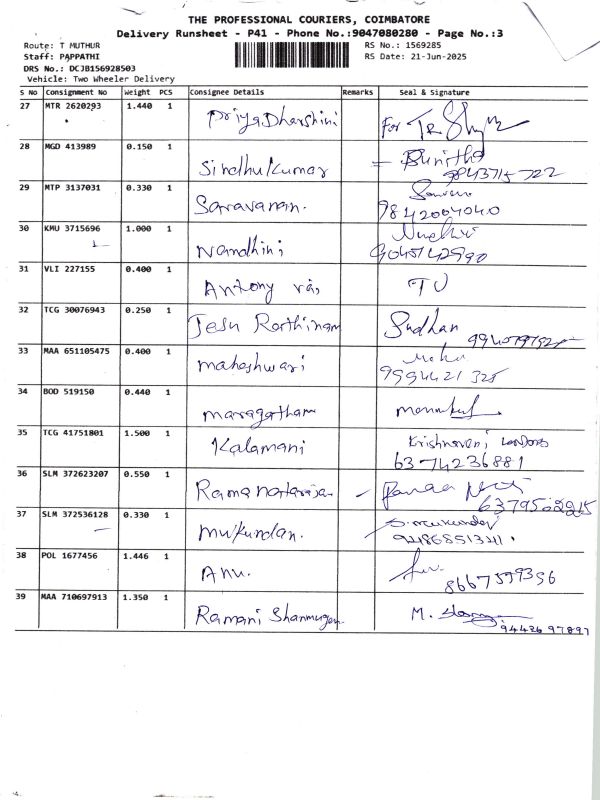 THE PROFESSIONAL COURIERS, COIMBATORE
Delivery Runsheet - P41 - Phone No.:9047080280 - Page No.:3
Route: T MUTHUR
RS No.: 1569285
Staff: PAPPATHI
RS Date: 21-Jun-2025
DRS No.: DCJB156928503
Vehicle: Two Wheeler Delivery
S No Consignment No Weight PCS Consignee Details Remarks Seal & Signature
27 MTR 2620293 1.440 1 PriyaDharshini For
28 MGD 413989 0.150 1 Sindhu kumar
9843715722
29 MTP 3137031 0.330 1 Saravanan.
9842004040
30 KMU 3715696 1.000 1 Nandhini
31 VLI 227155 0.400 1 Antony
32 TCG 30076943 0.250 1 Jesu Sudhan
33 MAA 651105475 0.400 1 maheshwari
9994421325
34 BOD 519150 0.440 1 maragatham
35 TCG 41751801 1.500 1 Kalamani Krishnaveni
6374236881
36 SLM 372623207 0.550 1 Rama
37 SLM 372536128 0.330 1 mukundan.
38 POL 1677456 1.446 1 Anu.
39 MAA 710697913 1.350 1 Ramani Shanmugam M.
9442697897